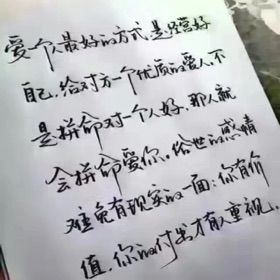 爱个人最好的方式，是经营好
自己，给对方一个优质的爱人。不
是拼命对一个人好，那人就
会拼命爱你。俗世的感情
难免有现实的一面：你有价
值，你的付出才有人重视。